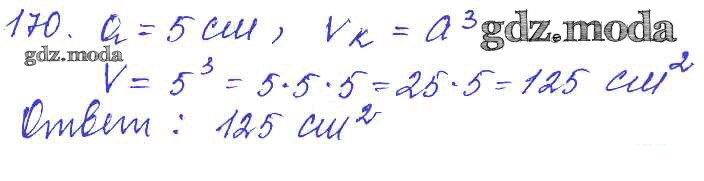 170. a = 5 см, Vк = a³ gdz.moda
gdz.moda
V = 5³ = 5·5·5 = 25·5 = 125 см²
Ответ: 125 см²